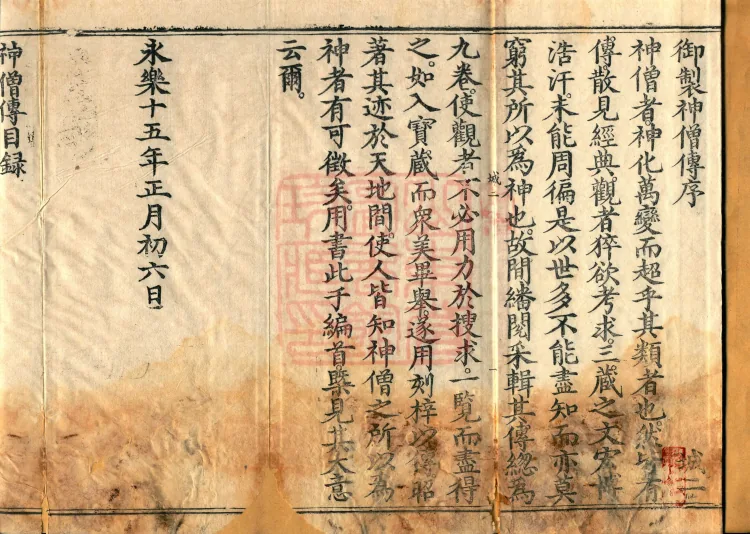 御製神僧傳序
城二
神僧者神化萬變而超乎其類者也。然皆有
傳散見經典。觀者猝欲考求。三藏之文宏博
浩汗。未能周徧。是以世多不能盡知。而亦莫
窮其所以為神也。故間繙閱采輯其傳。總為
城二
九卷。使觀者不必用力於搜求。一覽而盡得
之。如入寶藏而眾美畢舉。遂用刻梓以傳。昭
著其迹於天地間。使人皆知神僧之所以為
神者有可徵矣。用書此于編首。槩見其大意
云爾。
永樂十五年正月初六日
神僧傳目録